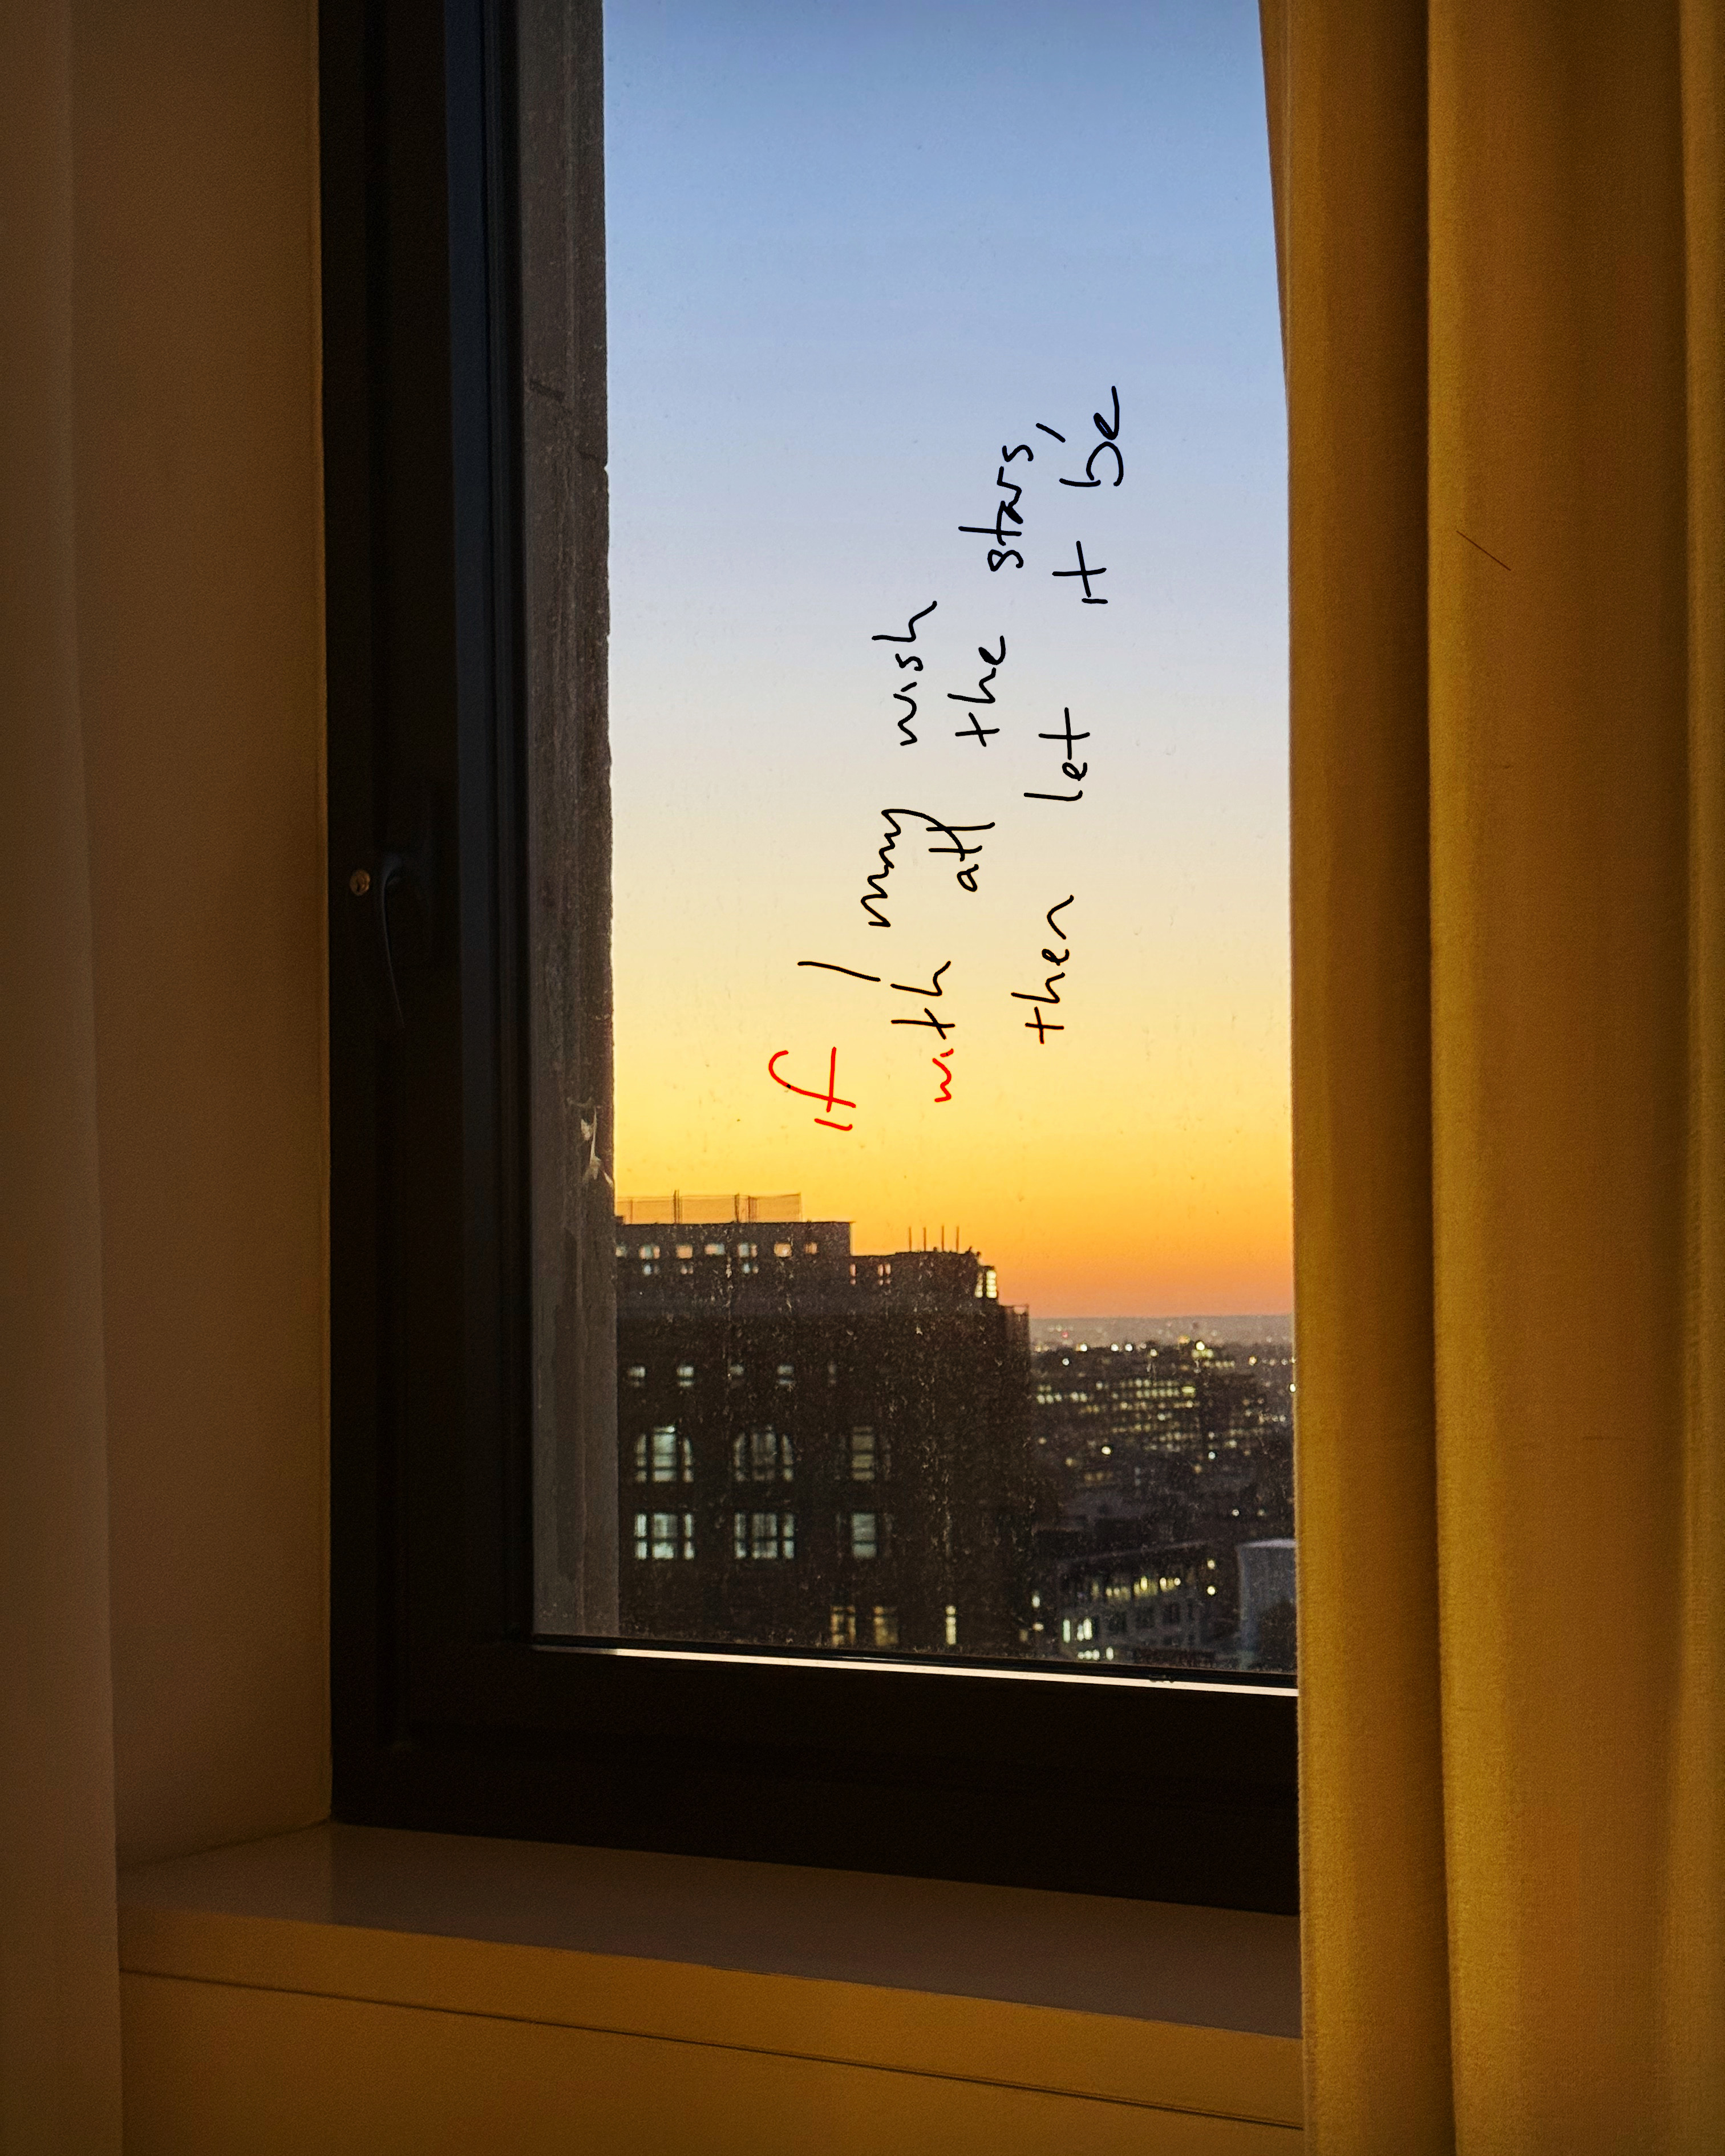 If I may wish
with all the stars,
then let it be